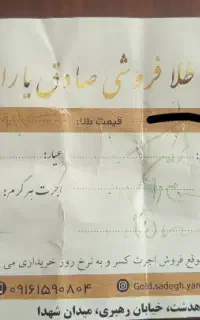 طلا فروشی صادق یارا
قیمت طلا:
عیار:
اجرت هر گرم:
موقع فروش اجرت کسر و به نرخ روز خریداری می
۰۹۱۶۱۵۹۰۸۰۴ Gold.sadegh.yar
هدشت، خیابان رهبری، میدان شهدا